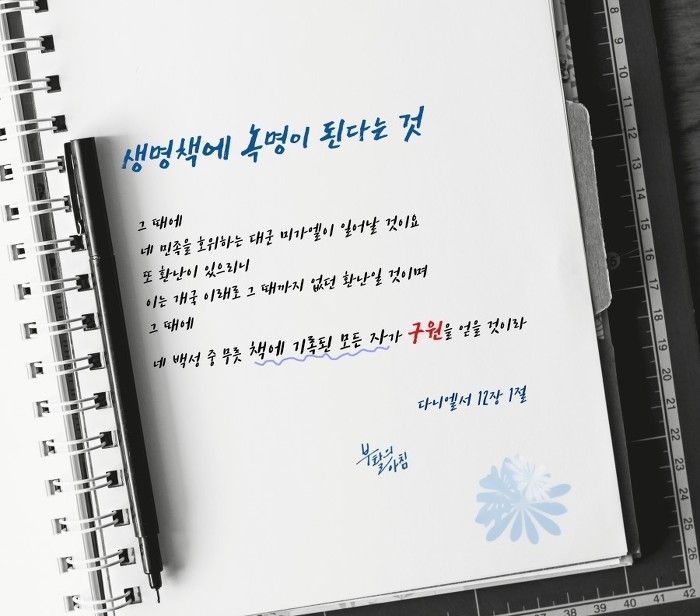 생명책에 녹명이 된다는 것
그 때에
네 민족을 호위하는 대군 미가엘이 일어날 것이요
또 환난이 있으리니
이는 개국 이래로 그 때까지 없던 환난일 것이며
그 때에
네 백성 중 무릇 책에 기록된 모든 자가 구원을 얻을 것이라
다니엘서 12장 1절
부활의
아침
8
9
10
11
12
13
14
15
16
17
18
19
20
21
22
23
24
25
26